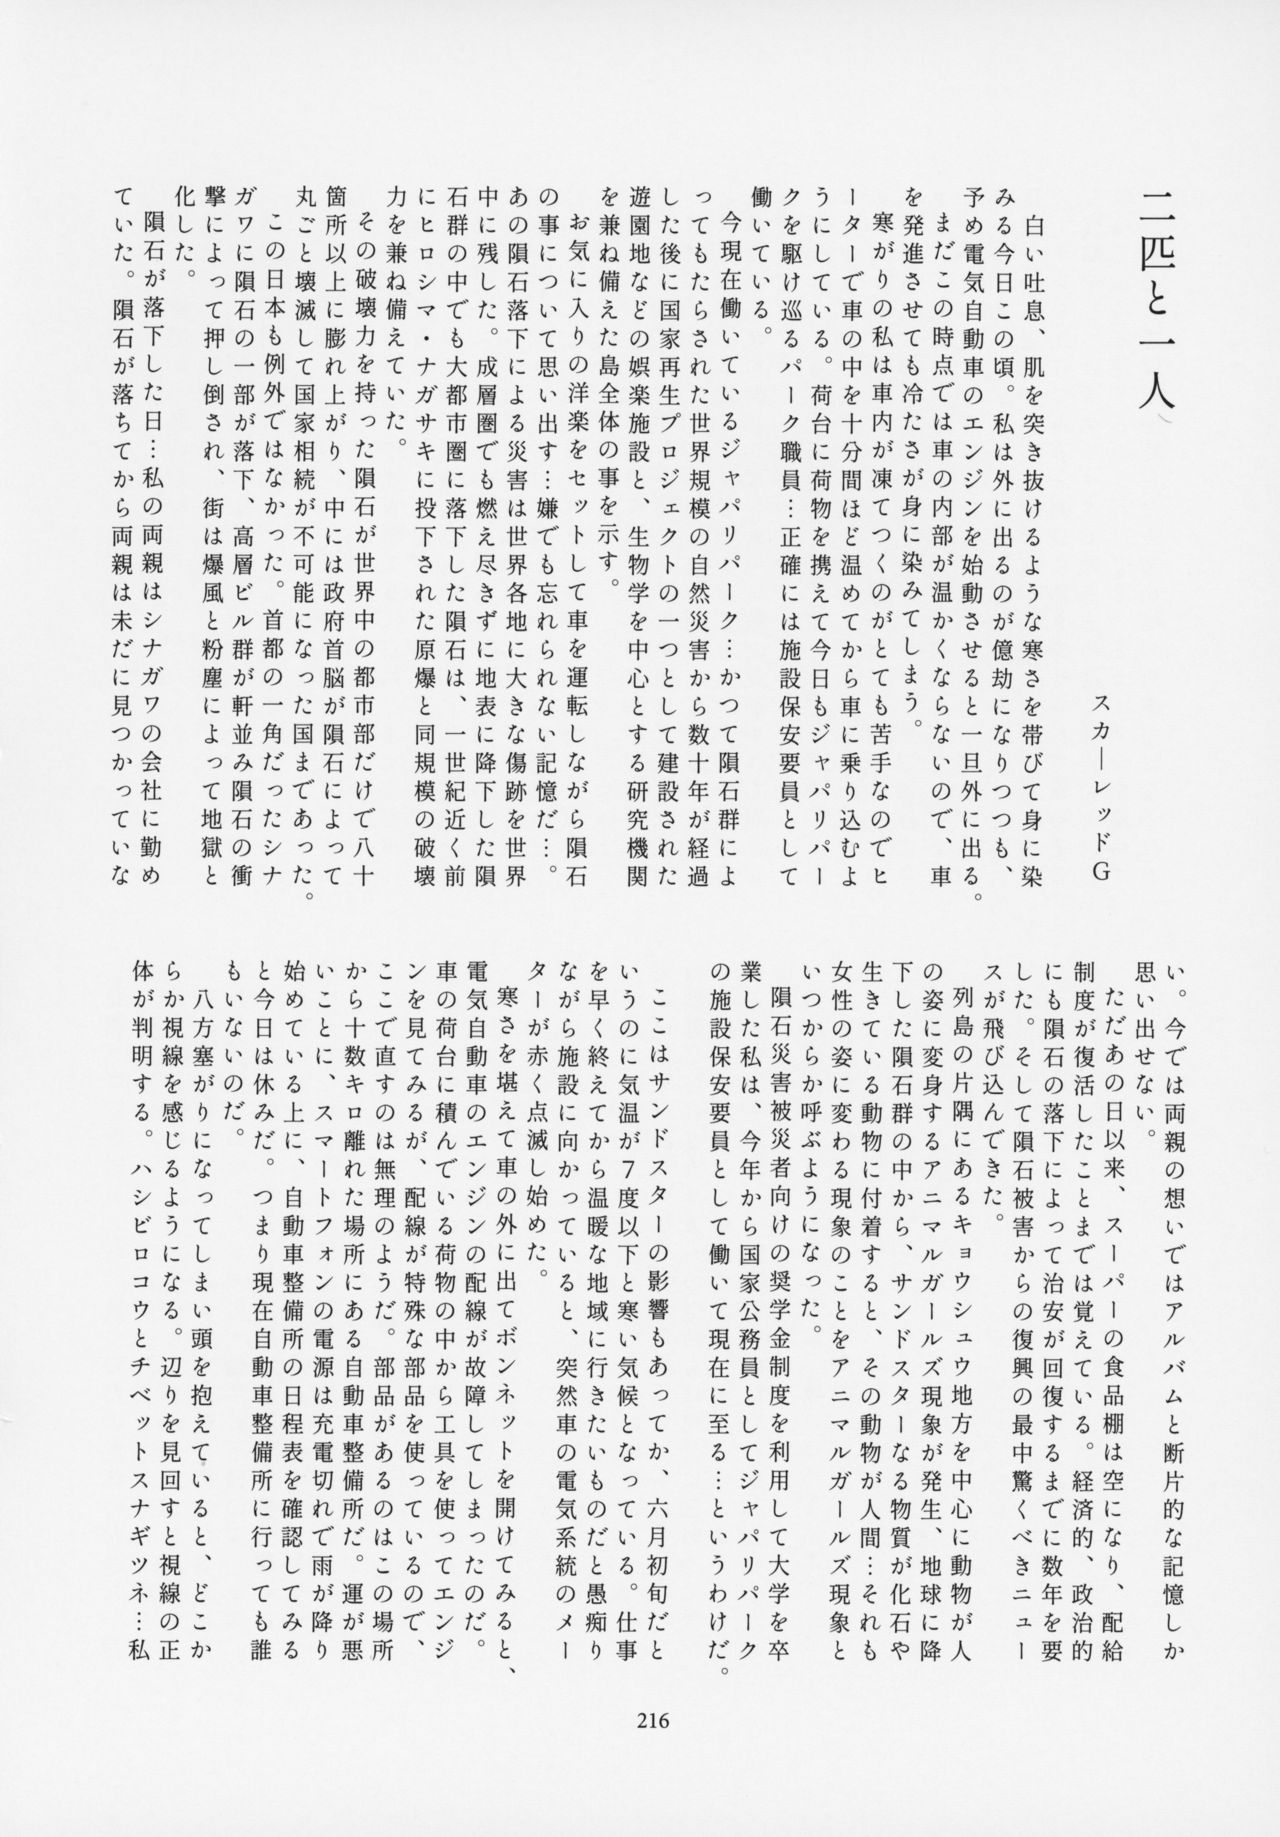 二匹と一人
スカ―レッドG
白い吐息、肌を突き抜けるような寒さを帯びて身に染
みる今日この頃。私は外に出るのが億劫になりつつも、
予め電気自動車のエンジンを始動させると一旦外に出る。
まだこの時点では車の内部が温かくならないので、車
を発進させても冷たさが身に染みてしまう。
寒がりの私は車内が凍てつくのがとても苦手なのでヒ
ーターで車の中を十分間ほど温めてから車に乗り込むよ
うにしている。荷台に荷物を携えて今日もジャパリパー
クを駆け巡るパーク職員…正確には施設保安要員として
働いている。
今現在働いているジャパリパーク…かつて隕石群によ
ってもたらされた世界規模の自然災害から数十年が経過
した後に国家再生プロジェクトの一つとして建設された
遊園地などの娯楽施設と、生物学を中心とする研究機関
を兼ね備えた島全体の事を示す。
お気に入りの洋楽をセットして車を運転しながら隕石
の事について思い出す…嫌でも忘れられない記憶だ…。
あの隕石落下による災害は世界各地に大きな傷跡を世界
中に残した。成層圏でも燃え尽きずに地表に降下した隕
石群の中でも大都市圏に落下した隕石は、一世紀近く前
にヒロシマ・ナガサキに投下された原爆と同規模の破壊
力を兼ね備えていた。
その破壊力を持った隕石が世界中の都市部だけで八十
箇所以上に膨れ上がり、中には政府首脳が隕石によって
丸ごと壊滅して国家相続が不可能になった国まであった。
この日本も例外ではなかった。首都の一角だったシナ
ガワに隕石の一部が落下、高層ビル群が軒並み隕石の衝
撃によって押し倒され、街は爆風と粉塵によって地獄と
化した。
隕石が落下した日…私の両親はシナガワの会社に勤め
ていた。隕石が落ちてから両親は未だに見つかっていな
い。今では両親の想いではアルバムと断片的な記憶しか
思い出せない。
ただあの日以来、スーパーの食品棚は空になり、配給
制度が復活したことまでは覚えている。経済的、政治的
にも隕石の落下によって治安が回復するまでに数年を要
した。そして隕石被害からの復興の最中驚くべきニュー
スが飛び込んできた。
列島の片隅にあるキョウシュウ地方を中心に動物が人
の姿に変身するアニマルガールズ現象が発生、地球に降
下した隕石群の中から、サンドスターなる物質が化石や
生きている動物に付着すると、その動物が人間…それも
女性の姿に変わる現象のことをアニマルガールズ現象と
いつからか呼ぶようになった。
隕石災害被災者向けの奨学金制度を利用して大学を卒
業した私は、今年から国家公務員としてジャパリパーク
の施設保安要員として働いて現在に至る…というわけだ。
ここはサンドスターの影響もあってか、六月初旬だと
いうのに気温が7度以下と寒い気候となっている。仕事
を早く終えてから温暖な地域に行きたいものだと愚痴り
ながら施設に向かっていると、突然車の電気系統のメー
ターが赤く点滅し始めた。
寒さを堪えて車の外に出てボンネットを開けてみると、
電気自動車のエンジンの配線が故障してしまったのだ。
車の荷台に積んでいる荷物の中から工具を使ってエンジ
ンを見てみるが、配線が特殊な部品を使っているので、
ここで直すのは無理のようだ。部品があるのはこの場所
から十数キロ離れた場所にある自動車整備所だ。運が悪
いことに、スマートフォンの電源は充電切れで雨が降り
始めている上に、自動車整備所の日程表を確認してみる
と今日は休みだ。つまり現在自動車整備所に行っても誰
もいないのだ。
八方塞がりになってしまい頭を抱えていると、どこか
らか視線を感じるようになる。辺りを見回すと視線の正
体が判明する。ハシビロコウとチベットスナギツネ…私
216